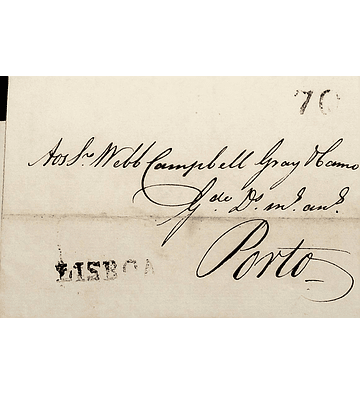 70
Aos Sr. Webb Campbell Gray & Camo
Gde Ds ms ans
Porto
LISBOA